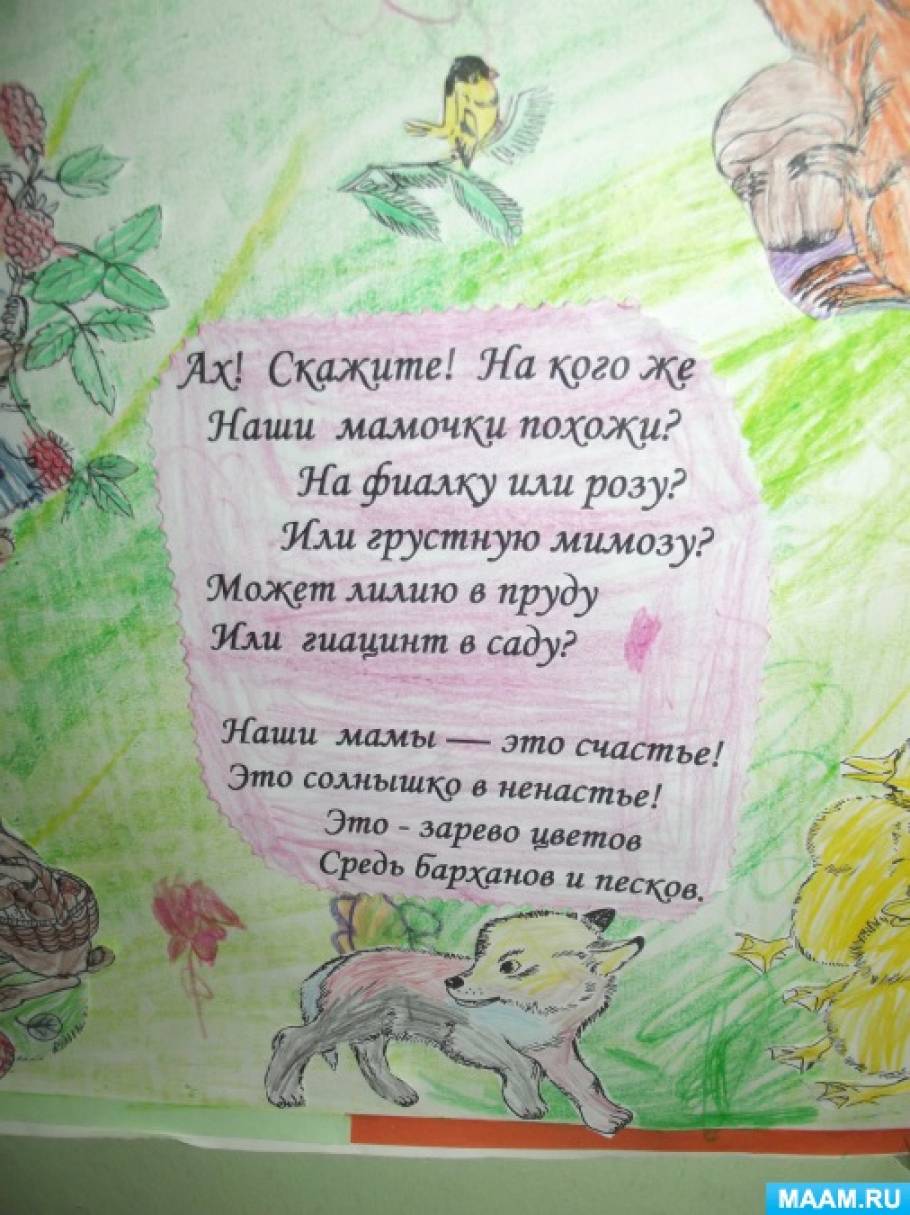 Ах! Скажите! На кого же
Наши мамочки похожи?
На фиалку или розу?
Или грустную мимозу?
Может лилию в пруду
Или гиацинт в саду?
Наши мамы — это счастье!
Это солнышко в ненастье!
Это - зарево цветов
Средь барханов и песков.
MAAM.RU